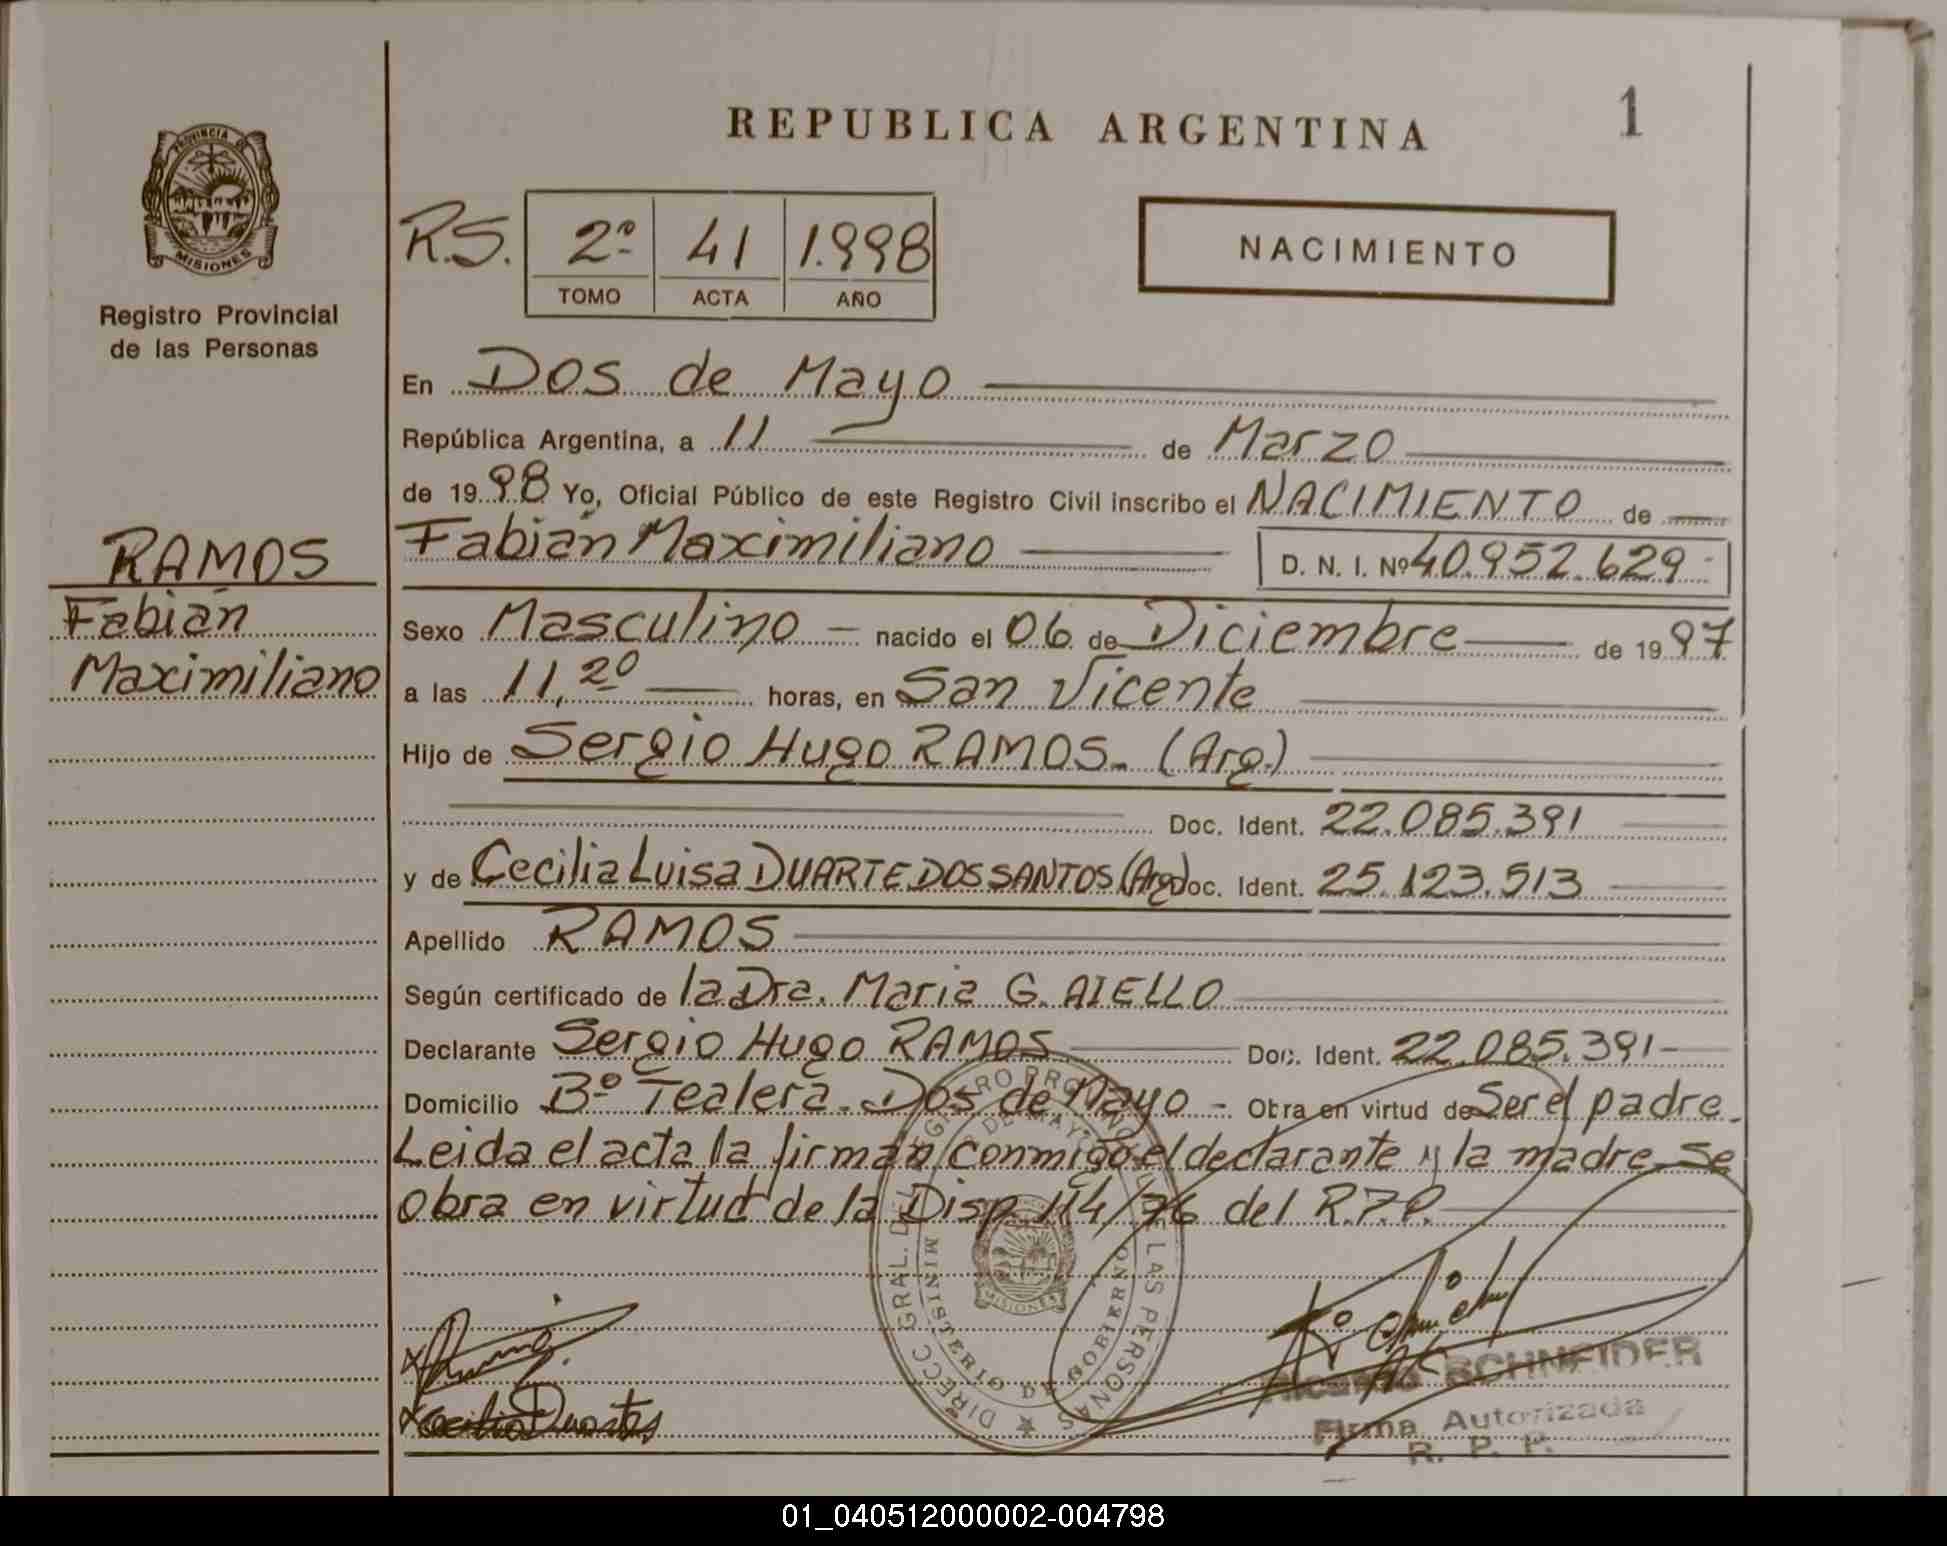 REPUBLICA ARGENTINA
1
PROVINCIA DE
MISIONES
Registro Provincial
de las Personas
R.S.
2º 41 1.998
TOMO ACTA AÑO
NACIMIENTO
En Dos de Mayo
República Argentina, a 11 de Marzo
de 1998 Yo, Oficial Público de este Registro Civil inscribo el NACIMIENTO de
RAMOS
Fabián
Maximiliano
Fabián Maximiliano D. N. I. Nº 40.952.629
Sexo Masculino nacido el 06 de Diciembre de 1997
a las 11,20 horas, en San Vicente
Hijo de Sergio Hugo RAMOS. (Arg.)
Doc. Ident. 22.085.391
y de Cecilia Luisa DUARTE DOS SANTOS (Arg.) Doc. Ident. 25.123.513
Apellido RAMOS
Según certificado de la Dra. Maria G. AIELLO
Declarante Sergio Hugo RAMOS Doc. Ident. 22.085.391
Domicilio Bº Tealera. Dos de Mayo - Obra en virtud de Ser el padre.
Leida el acta la firman conmigo el declarante y la madre. Se
obra en virtud de la Disp. 114/76 del R.P.P.
DIRECC. GRAL. DEL REGISTRO PROVINCIAL DE LAS PERSONAS
DOS DE MAYO
MINISTERIO DE GOBIERNO
MISIONES
Cecilia Duarte
Ricardo SCHNEIDER
Firma Autorizada
R. P. P.
01_040512000002-004798